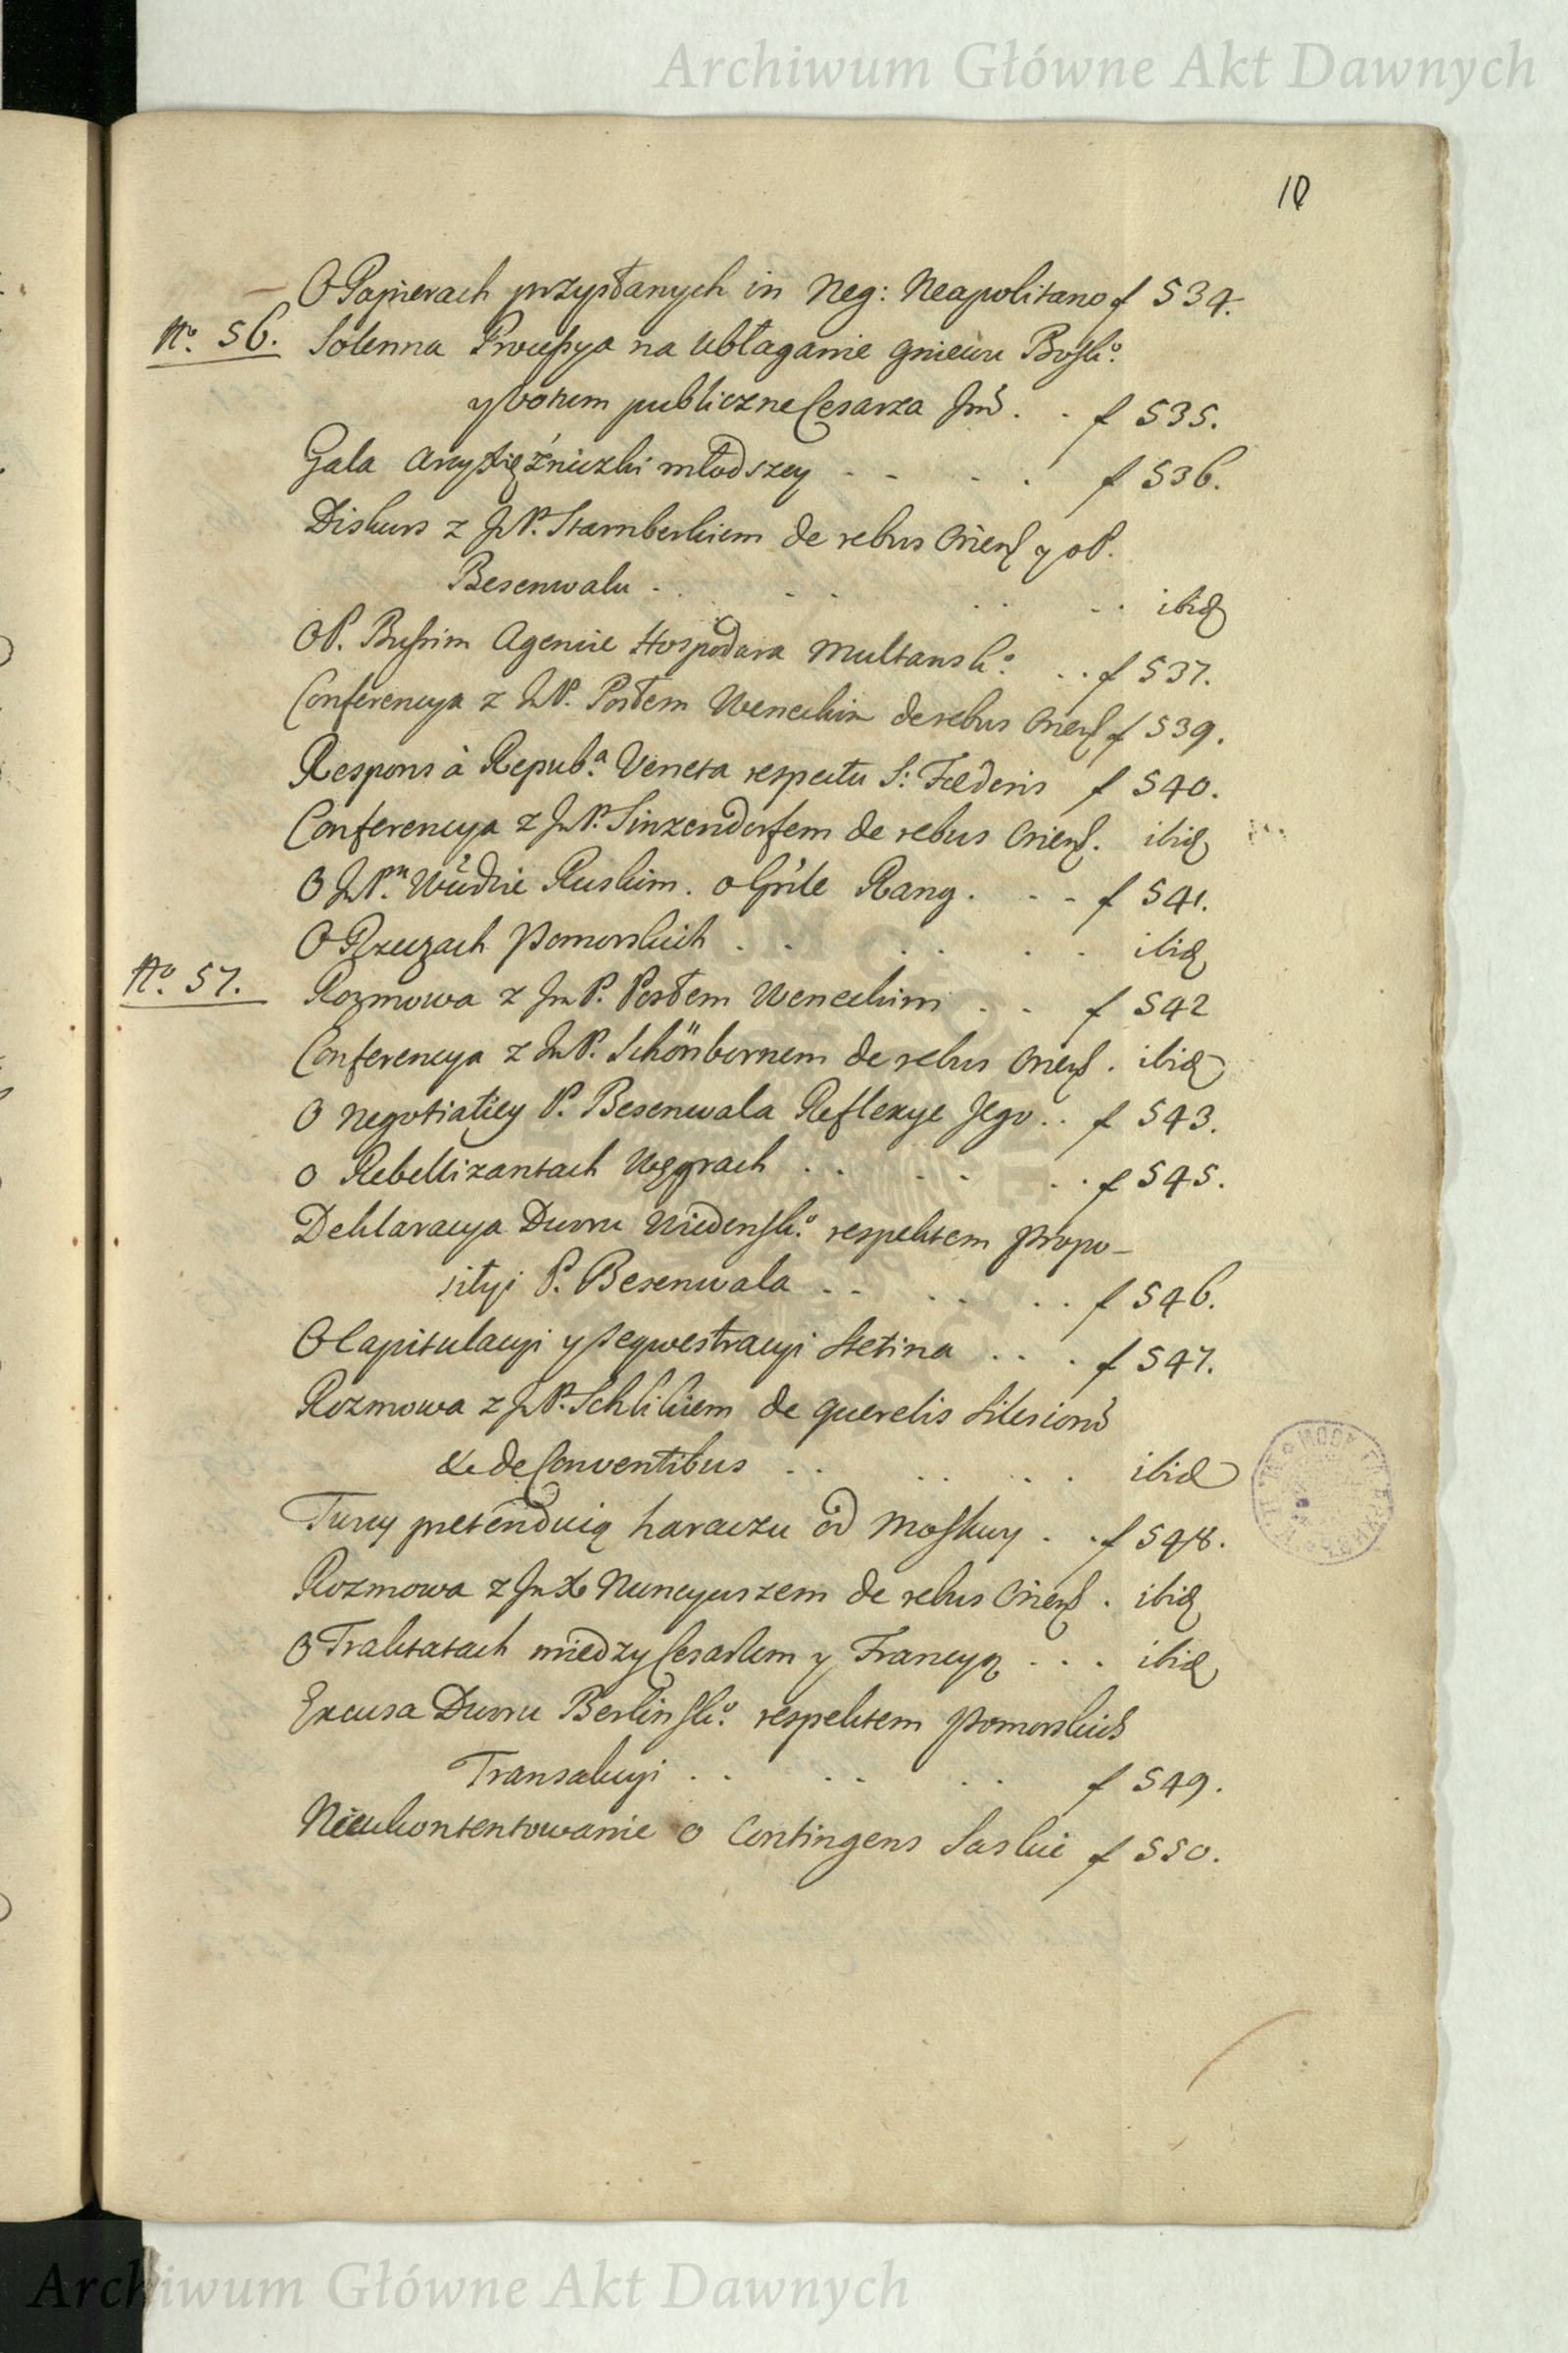 Archiwum Główne Akt Dawnych
10
O Papierach przysłanych in Neg: Neapolitano f 534.
No. 56. Solenna Processya na ubłaganie gniewu Boskio.
y votum publiczne Cesarza Jmći . . f 535.
Gala Arcyxiężniczki młodszey - - - . f 536.
Diskurs z JmP. Starnberkiem de rebus Orient y o P.
Besenwalu . . . . . ibid
O P. Bussim Agencie Hospodara Multansko. . . f 537.
Conferencya z JmP. Posłem Weneckim de rebus Orient f 539.
Respons à Repuba. Veneta respectu S: Fœderis f 540.
Conferencya z JmP. Sinzendorfem de rebus Orient. ibid
O JmPn. Wdzie Ruskim. o Grile Rang. - - f 541.
O Rzeczach Pomorskich . . . . . ibid
No. 57. Rozmowa z Jm P. Posłem Weneckim . . f 542
Conferencya z JmP. Schönbornem de rebus Orient . ibid
O Negotiatiey P. Besenwala Reflexye Jego . . f 543.
O Rebellizantach Węgrach . . . . . f 545.
Deklaracya Dworu Wiedensko. respektem Propo-
sityi P. Besenwala . . . . . . f 546.
O Capitulacyi y seqwestracyi Stetina . . . f 547.
Rozmowa z JmP. Schlikiem de querelis Silesiorum
& de Conventibus . . . . . ibid
Turcy pretenduią haraczu od Moskwy . . f 548.
Rozmowa z Jm X Nuncyuszem de rebus Orient . ibid
O Traktatach między Cesarzem y Francyą . . . ibid
Excusa Dworu Berlinsko. respektem Pomorskich
Transakcyi . . . . . . f 549.
Nieukontentowanie o Contingens Saskie f 550.
Archiwum Główne Akt Dawnych